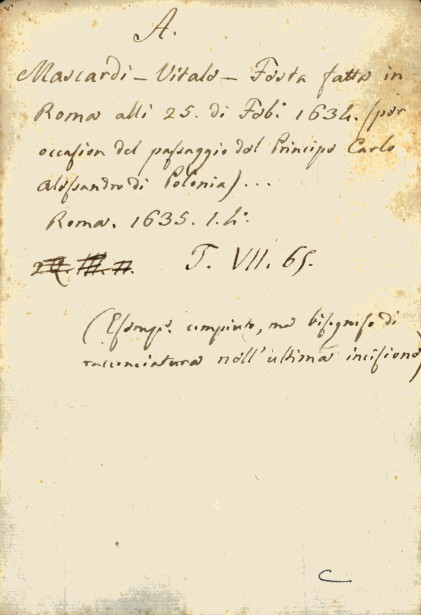 A.
Mascardi – Vitale – Festa fatta in
Roma alli 25. di Feb.º 1634. (per
occasion del passaggio del Principe Carlo
Alessandro di Polonia) ...
Roma. 1635. 1. 4º.
T. VII. 65.
(Esemp.º compiuto, ma bisognoso di
racconciatura nell'ultima incisione)
C